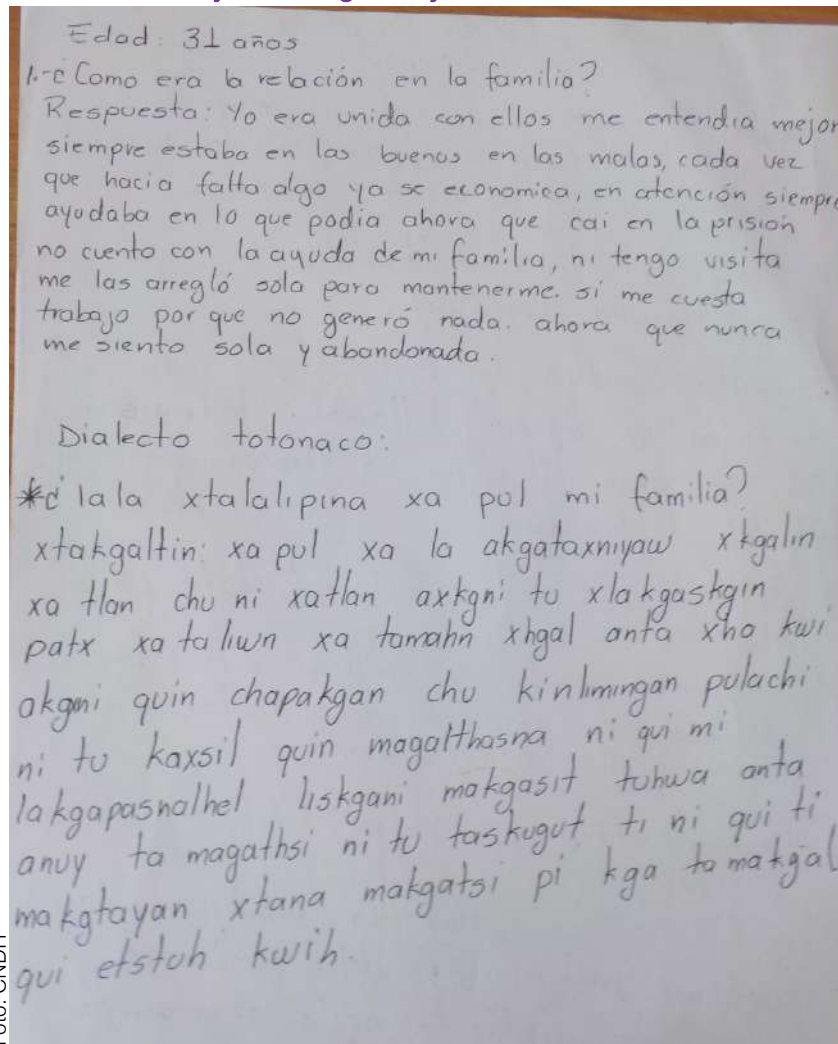 Edad: 31 años
1.-¿Como era la relación en la familia?
Respuesta: Yo era unida con ellos me entendia mejor
siempre estaba en las buenas en las malas, cada vez
que hacia falta algo ya se economica, en atención siempre
ayudaba en lo que podia ahora que cai en la prisión
no cuento con la ayuda de mi familia, ni tengo visita
me las arregló sola para mantenerme. si me cuesta
trabajo por que no generó nada. ahora que nunca
me siento sola y abandonada.
Dialecto totonaco:
*¿ lala xtalalipina xa pul mi familia?
xtakgaltin: xa pul xa la akgataxniyaw xkgalin
xa tlan chu ni xatlan axkgni tu xlakgaskgin
patx xa taliwn xa tamahn xhgal anta xho kwi
akgni quin chapakgan chu kinlimingan pulachi
ni tu kaxsil quin magalthasna ni qui mi
lakgapasnalhel liskgani makgasit tuhwa anta
anuy ta magathsi ni tu taskugut ti ni qui ti
makgtayan xtana makgatsi pi kga tamakgal
qui etstuh kwih.
Foto: CNDH